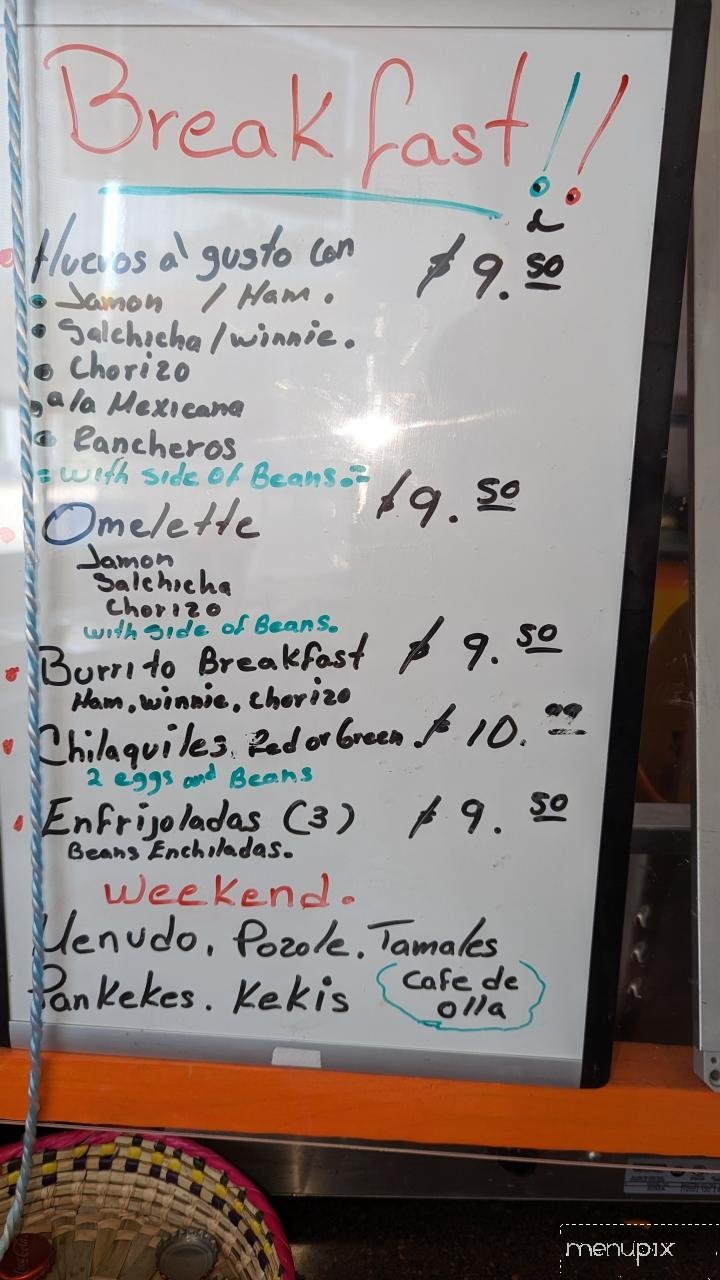 Breakfast!!
Huevos al gusto con $9.50
Jamon / Ham.
Salchicha/winnie.
Chorizo
a la Mexicana
Rancheros
= with side of Beans.=
Omelette $9.50
Jamon
Salchicha
Chorizo
with side of Beans.
Burrito Breakfast $9.50
Ham, winnie, chorizo
Chilaquiles Red or Green. $10.99
2 eggs and Beans
Enfrijoladas (3) $9.50
Beans Enchiladas.
Weekend.
Menudo, Pozole. Tamales
Pankekes. Kekis
Cafe de
olla
menupix